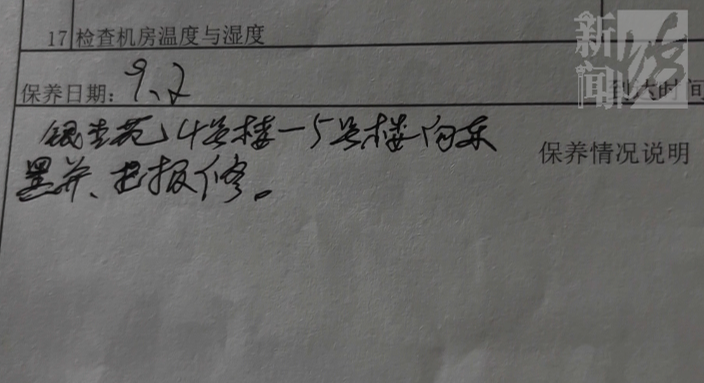 17 检查机房温度与湿度
保养日期: 9.2
到达时间
银杏苑4号楼-5号楼向东
保养情况说明
黑井、已报修。
新闻坊